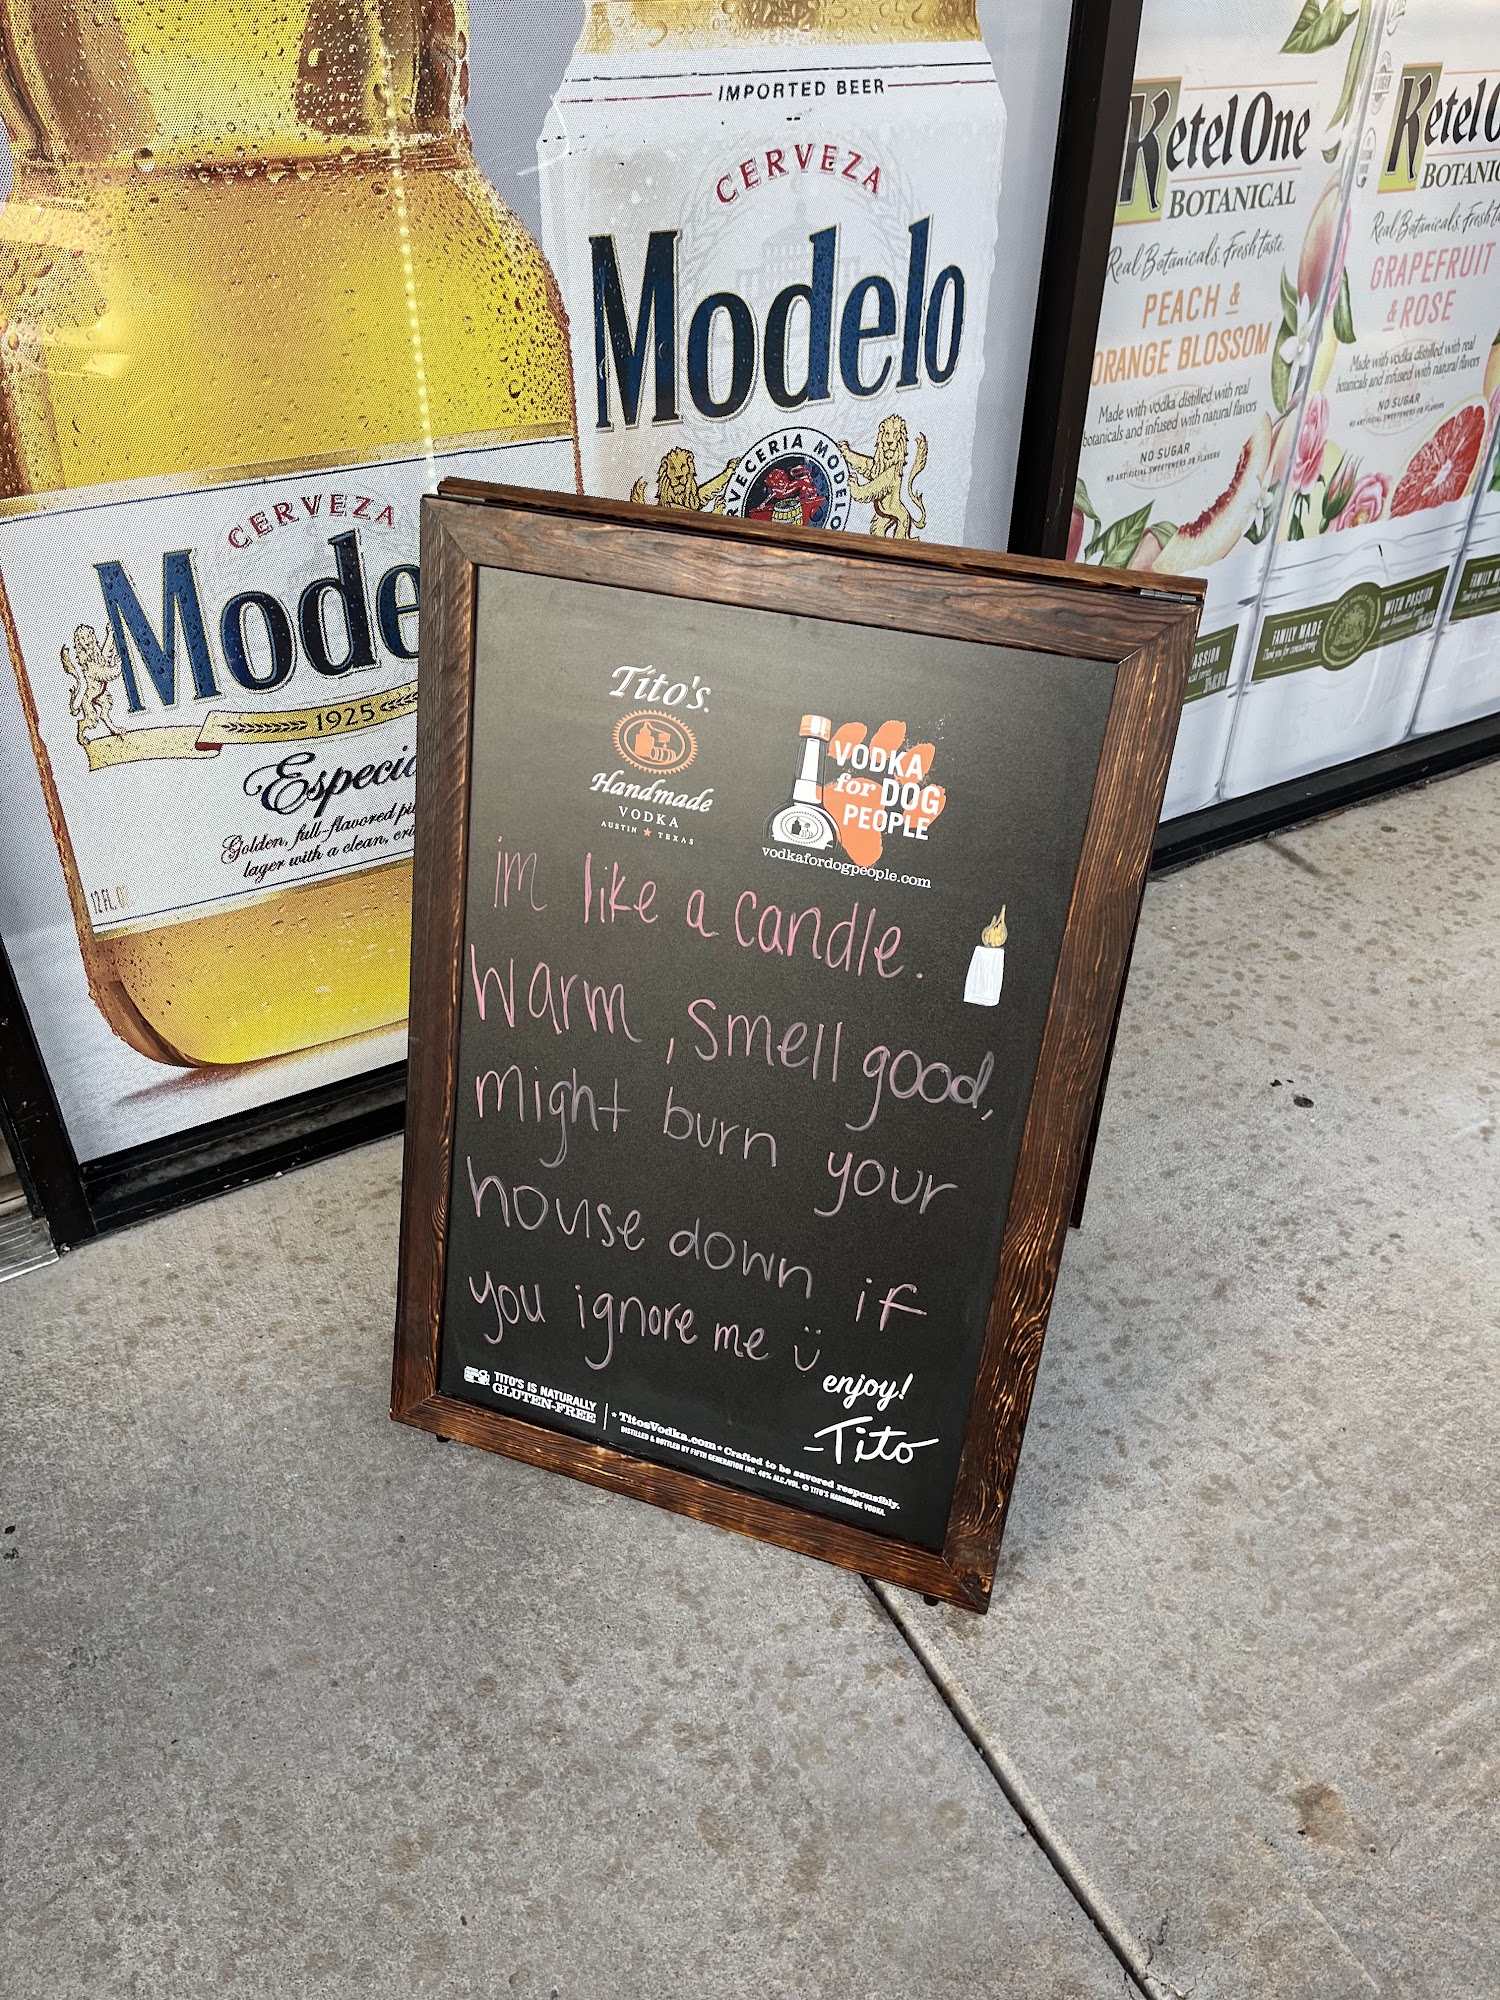 IMPORTED BEER
CERVEZA
Modelo
CERVECERIA MODELO
CERVEZA
Mode
1925
Especia
Golden, full-flavored pi
lager with a clean, cri
12 FL. OZ
Ketel One
BOTANICAL
Real Botanicals. Fresh taste.
PEACH &
ORANGE BLOSSOM
Made with vodka distilled with real
botanicals and infused with natural flavors
NO SUGAR
NO ARTIFICIAL SWEETENERS OR FLAVORS
FAMILY MADE
WITH PASSION
Ketel O
BOTANIC
Real Botanicals. Fresh t
GRAPEFRUIT
& ROSE
Made with vodka distilled with real
botanicals and infused with natural flavors
NO SUGAR
NO ARTIFICIAL SWEETENERS OR FLAVORS
FAMILY M
ASSION
Tito's.
Handmade
VODKA
AUSTIN ★ TEXAS
VODKA
for DOG
PEOPLE
vodkafordogpeople.com
im like a candle.
Warm, smell good,
might burn your
house down if
you ignore me ü
enjoy!
-Tito
TITO'S IS NATURALLY
GLUTEN-FREE
* TitosVodka.com * Crafted to be savored responsibly.
DISTILLED & BOTTLED BY FIFTH GENERATION INC. 40% ALC./VOL. © TITO'S HANDMADE VODKA.